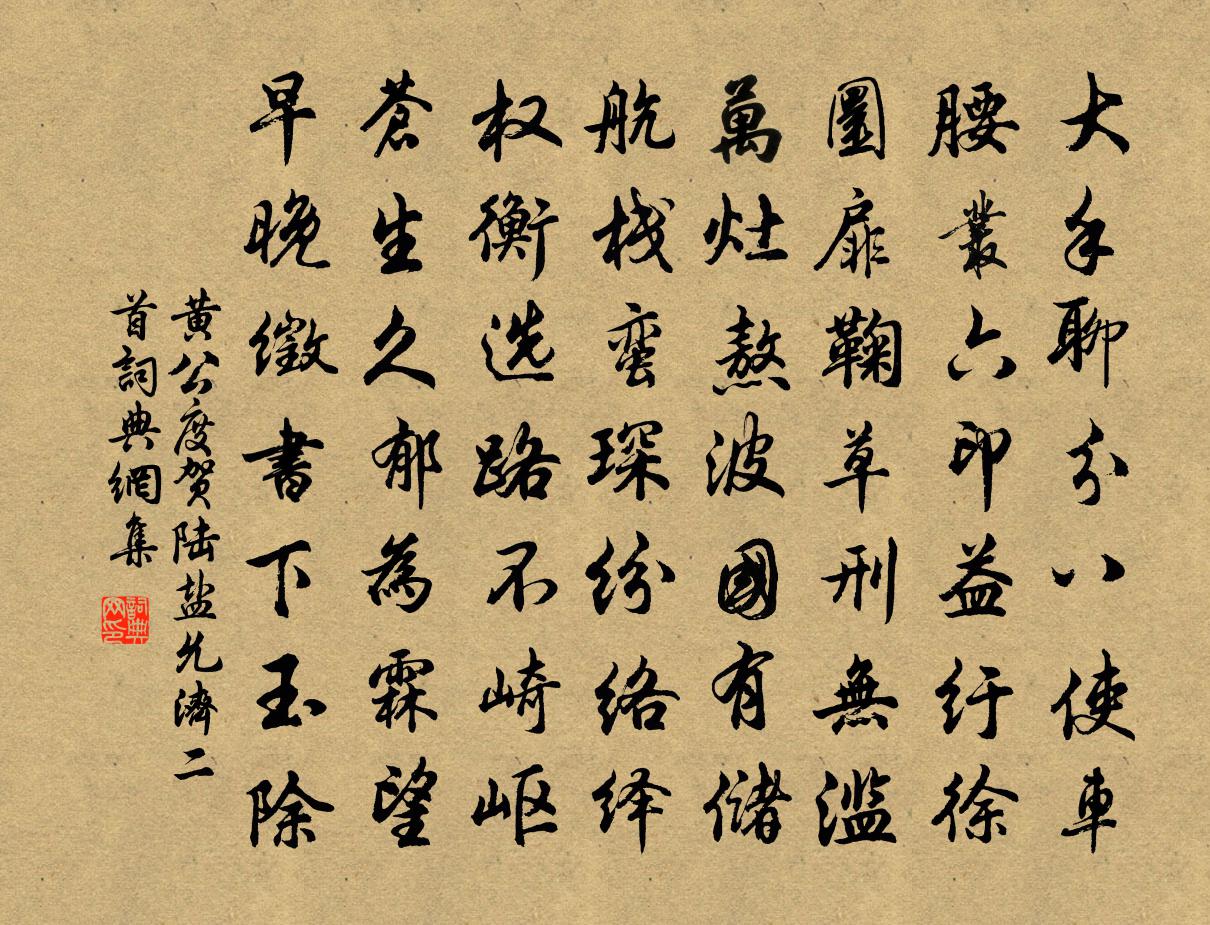 大手聊分八使車
腰叢六印益紆徐
圜扉鞠草刑無濫
萬灶熬波國有儲
航棧蛮琛纷络绎
权衡选路不崎岖
蒼生久郁為霖望
早晚徵書下玉除
黄公度贺陆盐允濟二
首詞典網集
詞典
网印